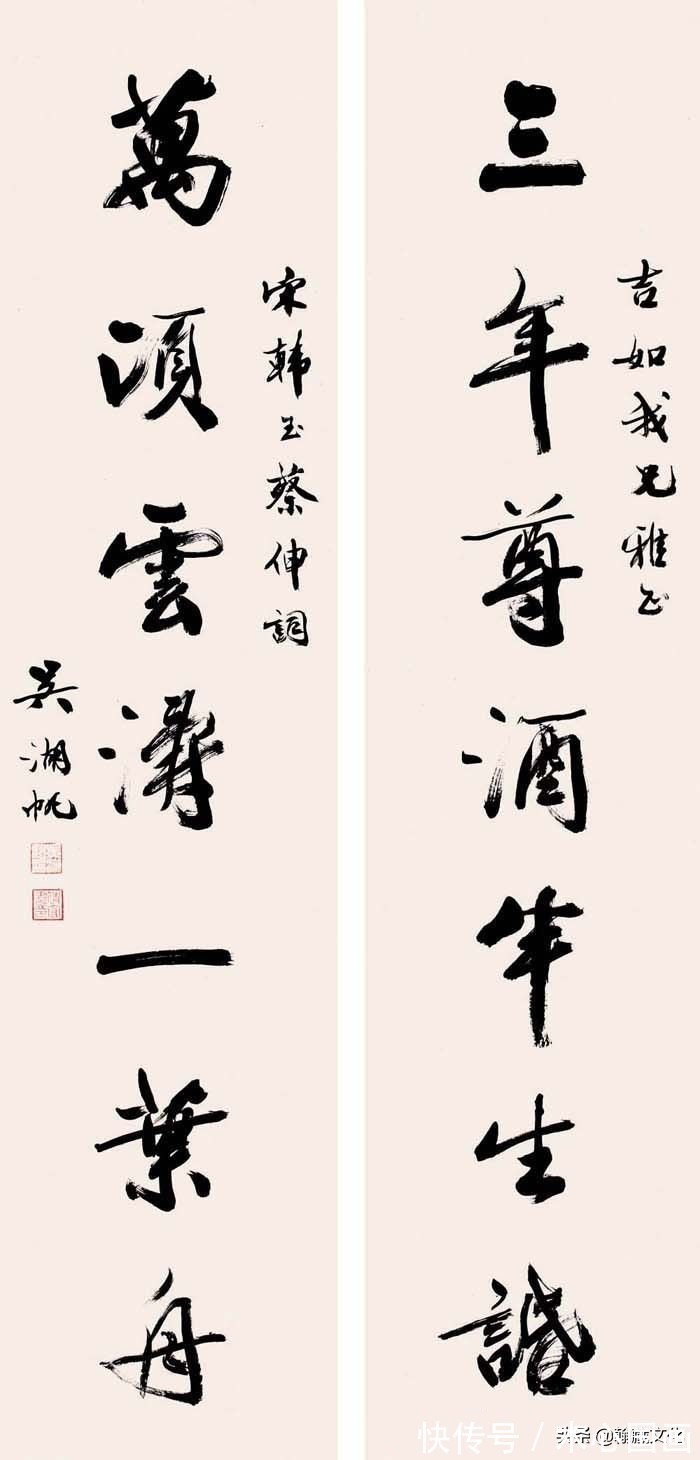 三年尊酒半生話
吉如我兄雅正
萬頃雲濤一葉舟
宋韓玉蔡伸詞
吴湖帆
头条 @翰墨文化
快传号 /